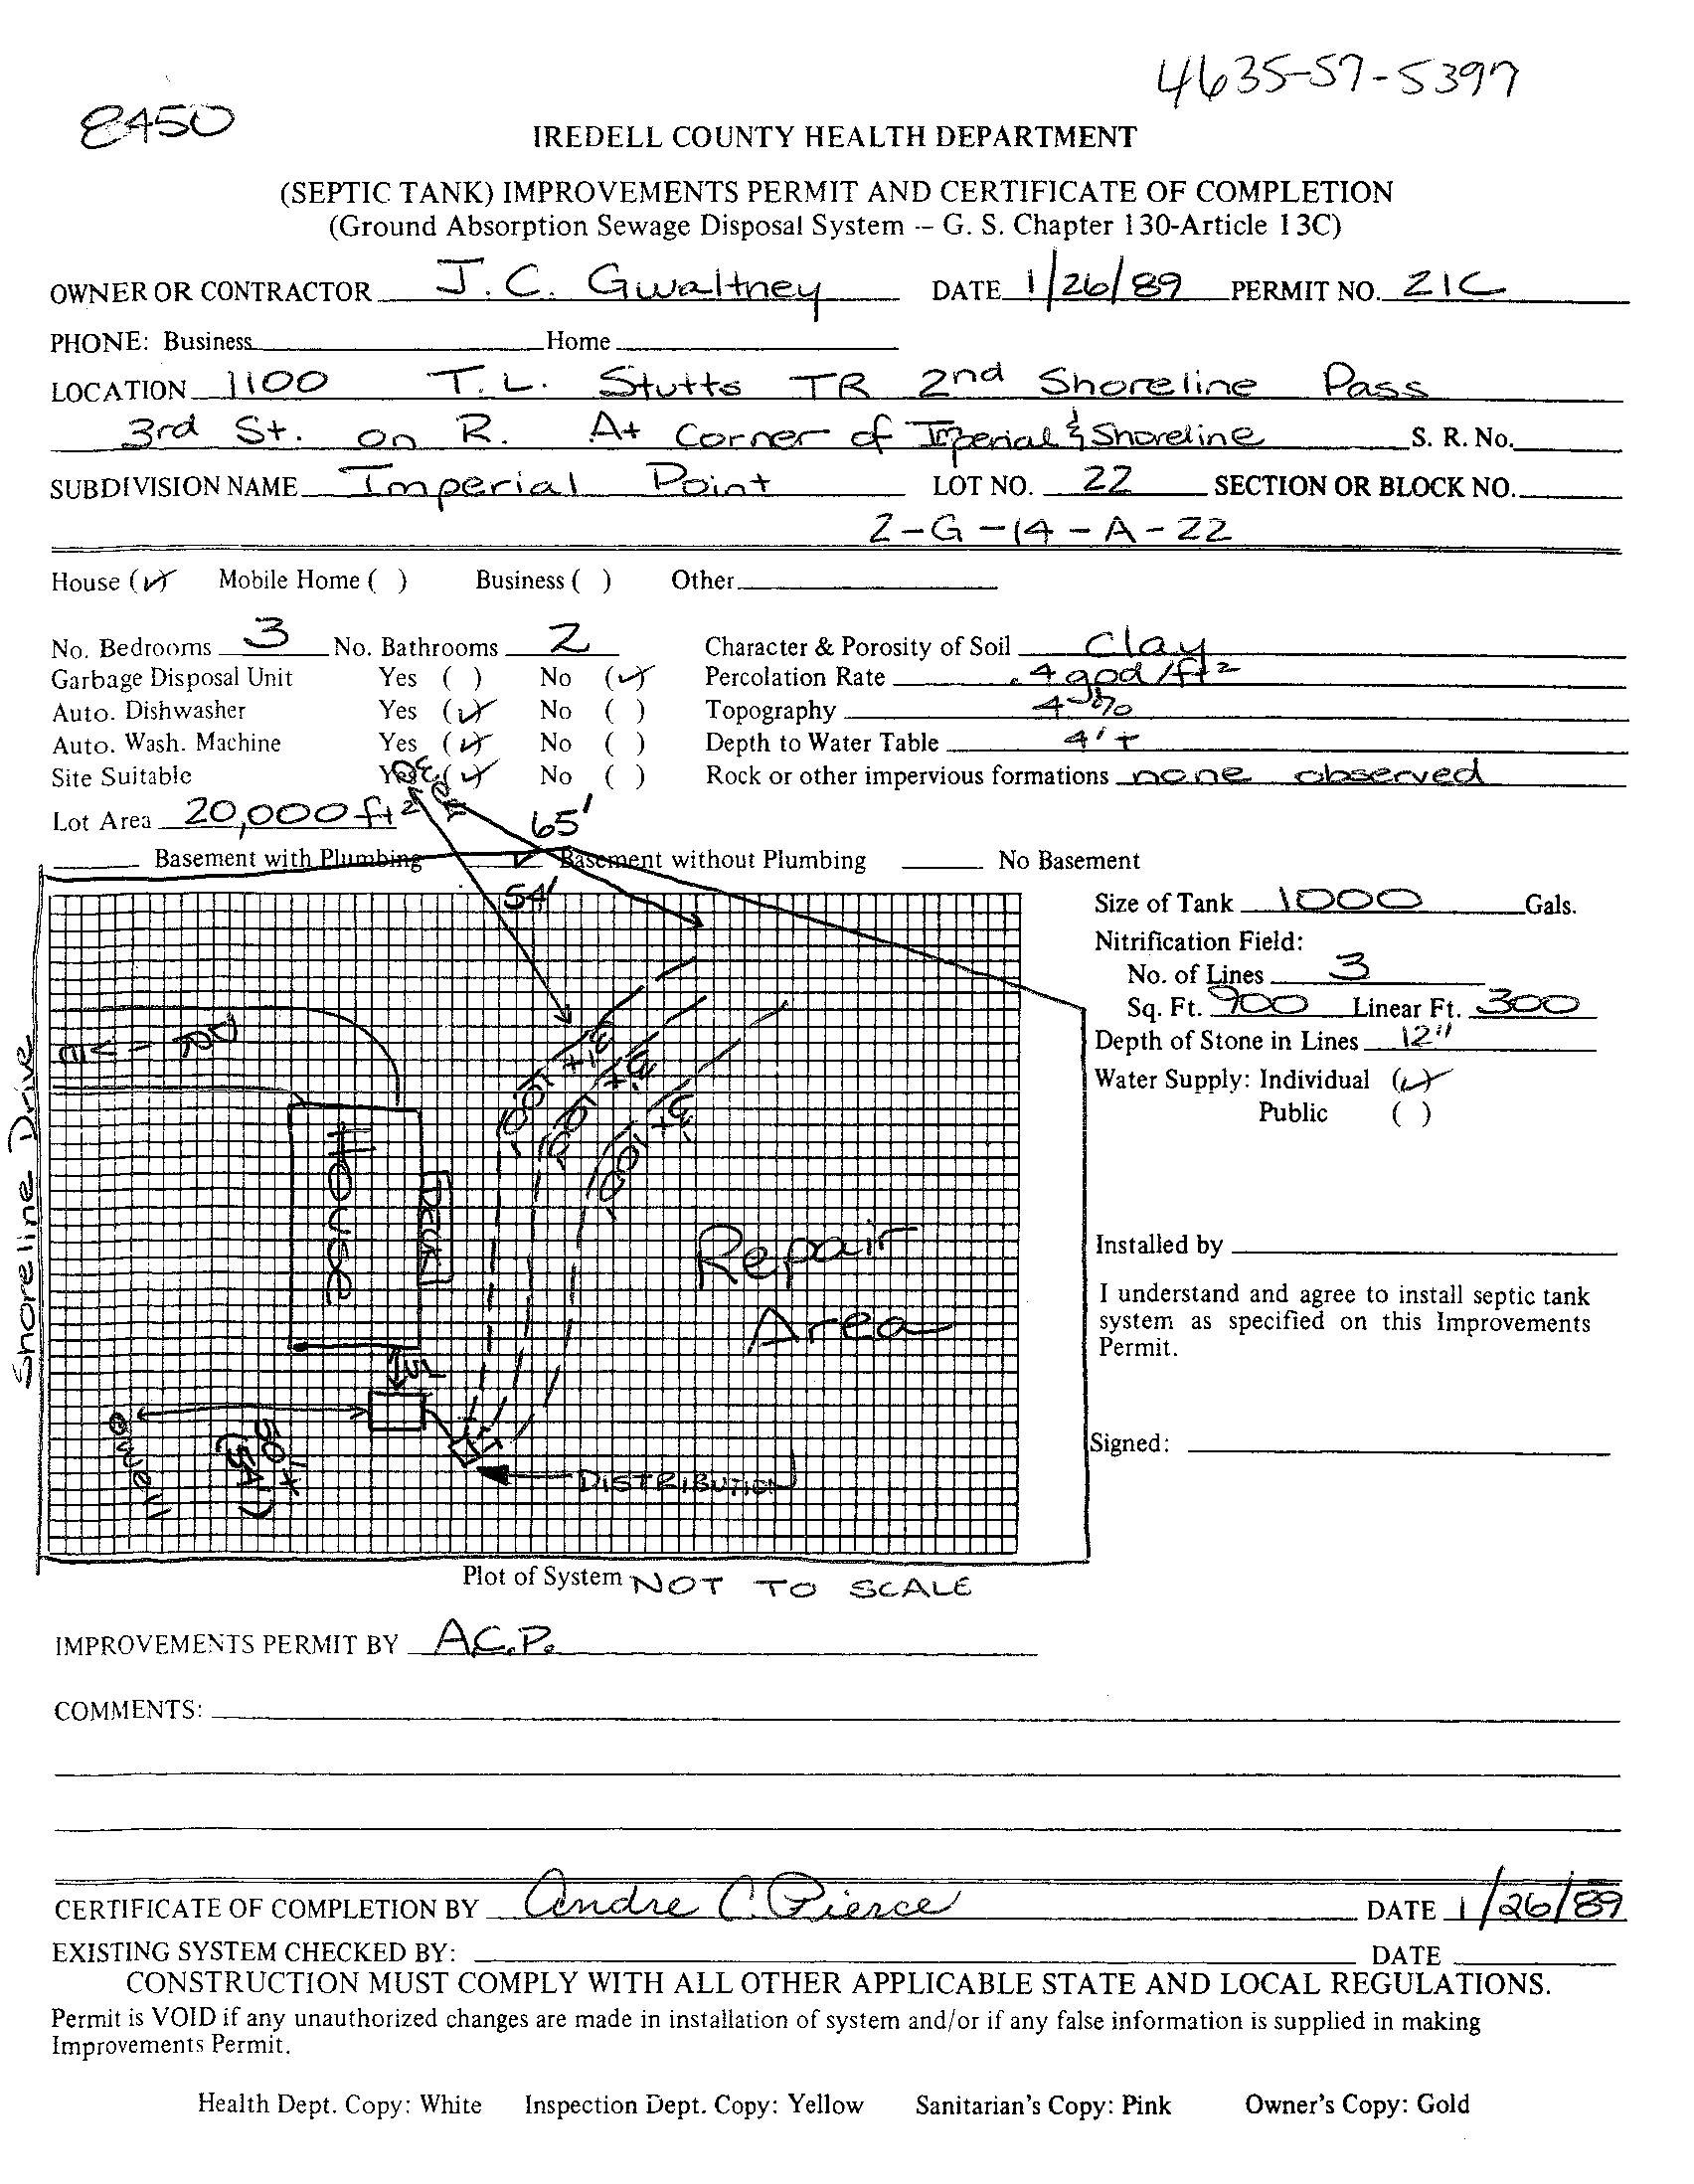 4635-57-5397
8450
IREDELL COUNTY HEALTH DEPARTMENT
(SEPTIC TANK) IMPROVEMENTS PERMIT AND CERTIFICATE OF COMPLETION
(Ground Absorption Sewage Disposal System -- G. S. Chapter 130-Article 13C)
OWNER OR CONTRACTOR J. C. Gwaltney DATE 1/26/89 PERMIT NO. 21C
PHONE: Business Home
LOCATION 1100 T.L. Stutts TR 2nd Shoreline Pass
3rd St. on R. At Corner of Imperial & Shoreline S. R. No.
SUBDIVISION NAME Imperial Point LOT NO. 22 SECTION OR BLOCK NO.
2-G-14-A-22
House (✓) Mobile Home ( ) Business ( ) Other
No. Bedrooms 3 No. Bathrooms 2 Character & Porosity of Soil Clay
Garbage Disposal Unit Yes ( ) No (✓) Percolation Rate .4 gpd/ft2
Auto. Dishwasher Yes (✓) No ( ) Topography 4%
Auto. Wash. Machine Yes (✓) No ( ) Depth to Water Table 4'+
Site Suitable Yes (✓) No ( ) Rock or other impervious formations none observed
Lot Area 20,000 ft2 65'
Basement with Plumbing ✓ Basement without Plumbing No Basement
54'
Size of Tank 1000 Gals.
Nitrification Field:
No. of Lines 3
Sq. Ft. 900 Linear Ft. 300
Depth of Stone in Lines 12"
Water Supply: Individual (✓)
Public ( )
Shoreline Drive
3'x100'
3'x100'
3'x100'
House
Deck
Repair
Area
5'
well
50'+
DISTRIBUTION
Installed by
I understand and agree to install septic tank
system as specified on this Improvements
Permit.
Signed:
Plot of System NOT TO SCALE
IMPROVEMENTS PERMIT BY A.C.P.
COMMENTS:
CERTIFICATE OF COMPLETION BY Andre C. Pierce DATE 1/26/89
EXISTING SYSTEM CHECKED BY: DATE
CONSTRUCTION MUST COMPLY WITH ALL OTHER APPLICABLE STATE AND LOCAL REGULATIONS.
Permit is VOID if any unauthorized changes are made in installation of system and/or if any false information is supplied in making
Improvements Permit.
Health Dept. Copy: White Inspection Dept. Copy: Yellow Sanitarian's Copy: Pink Owner's Copy: Gold